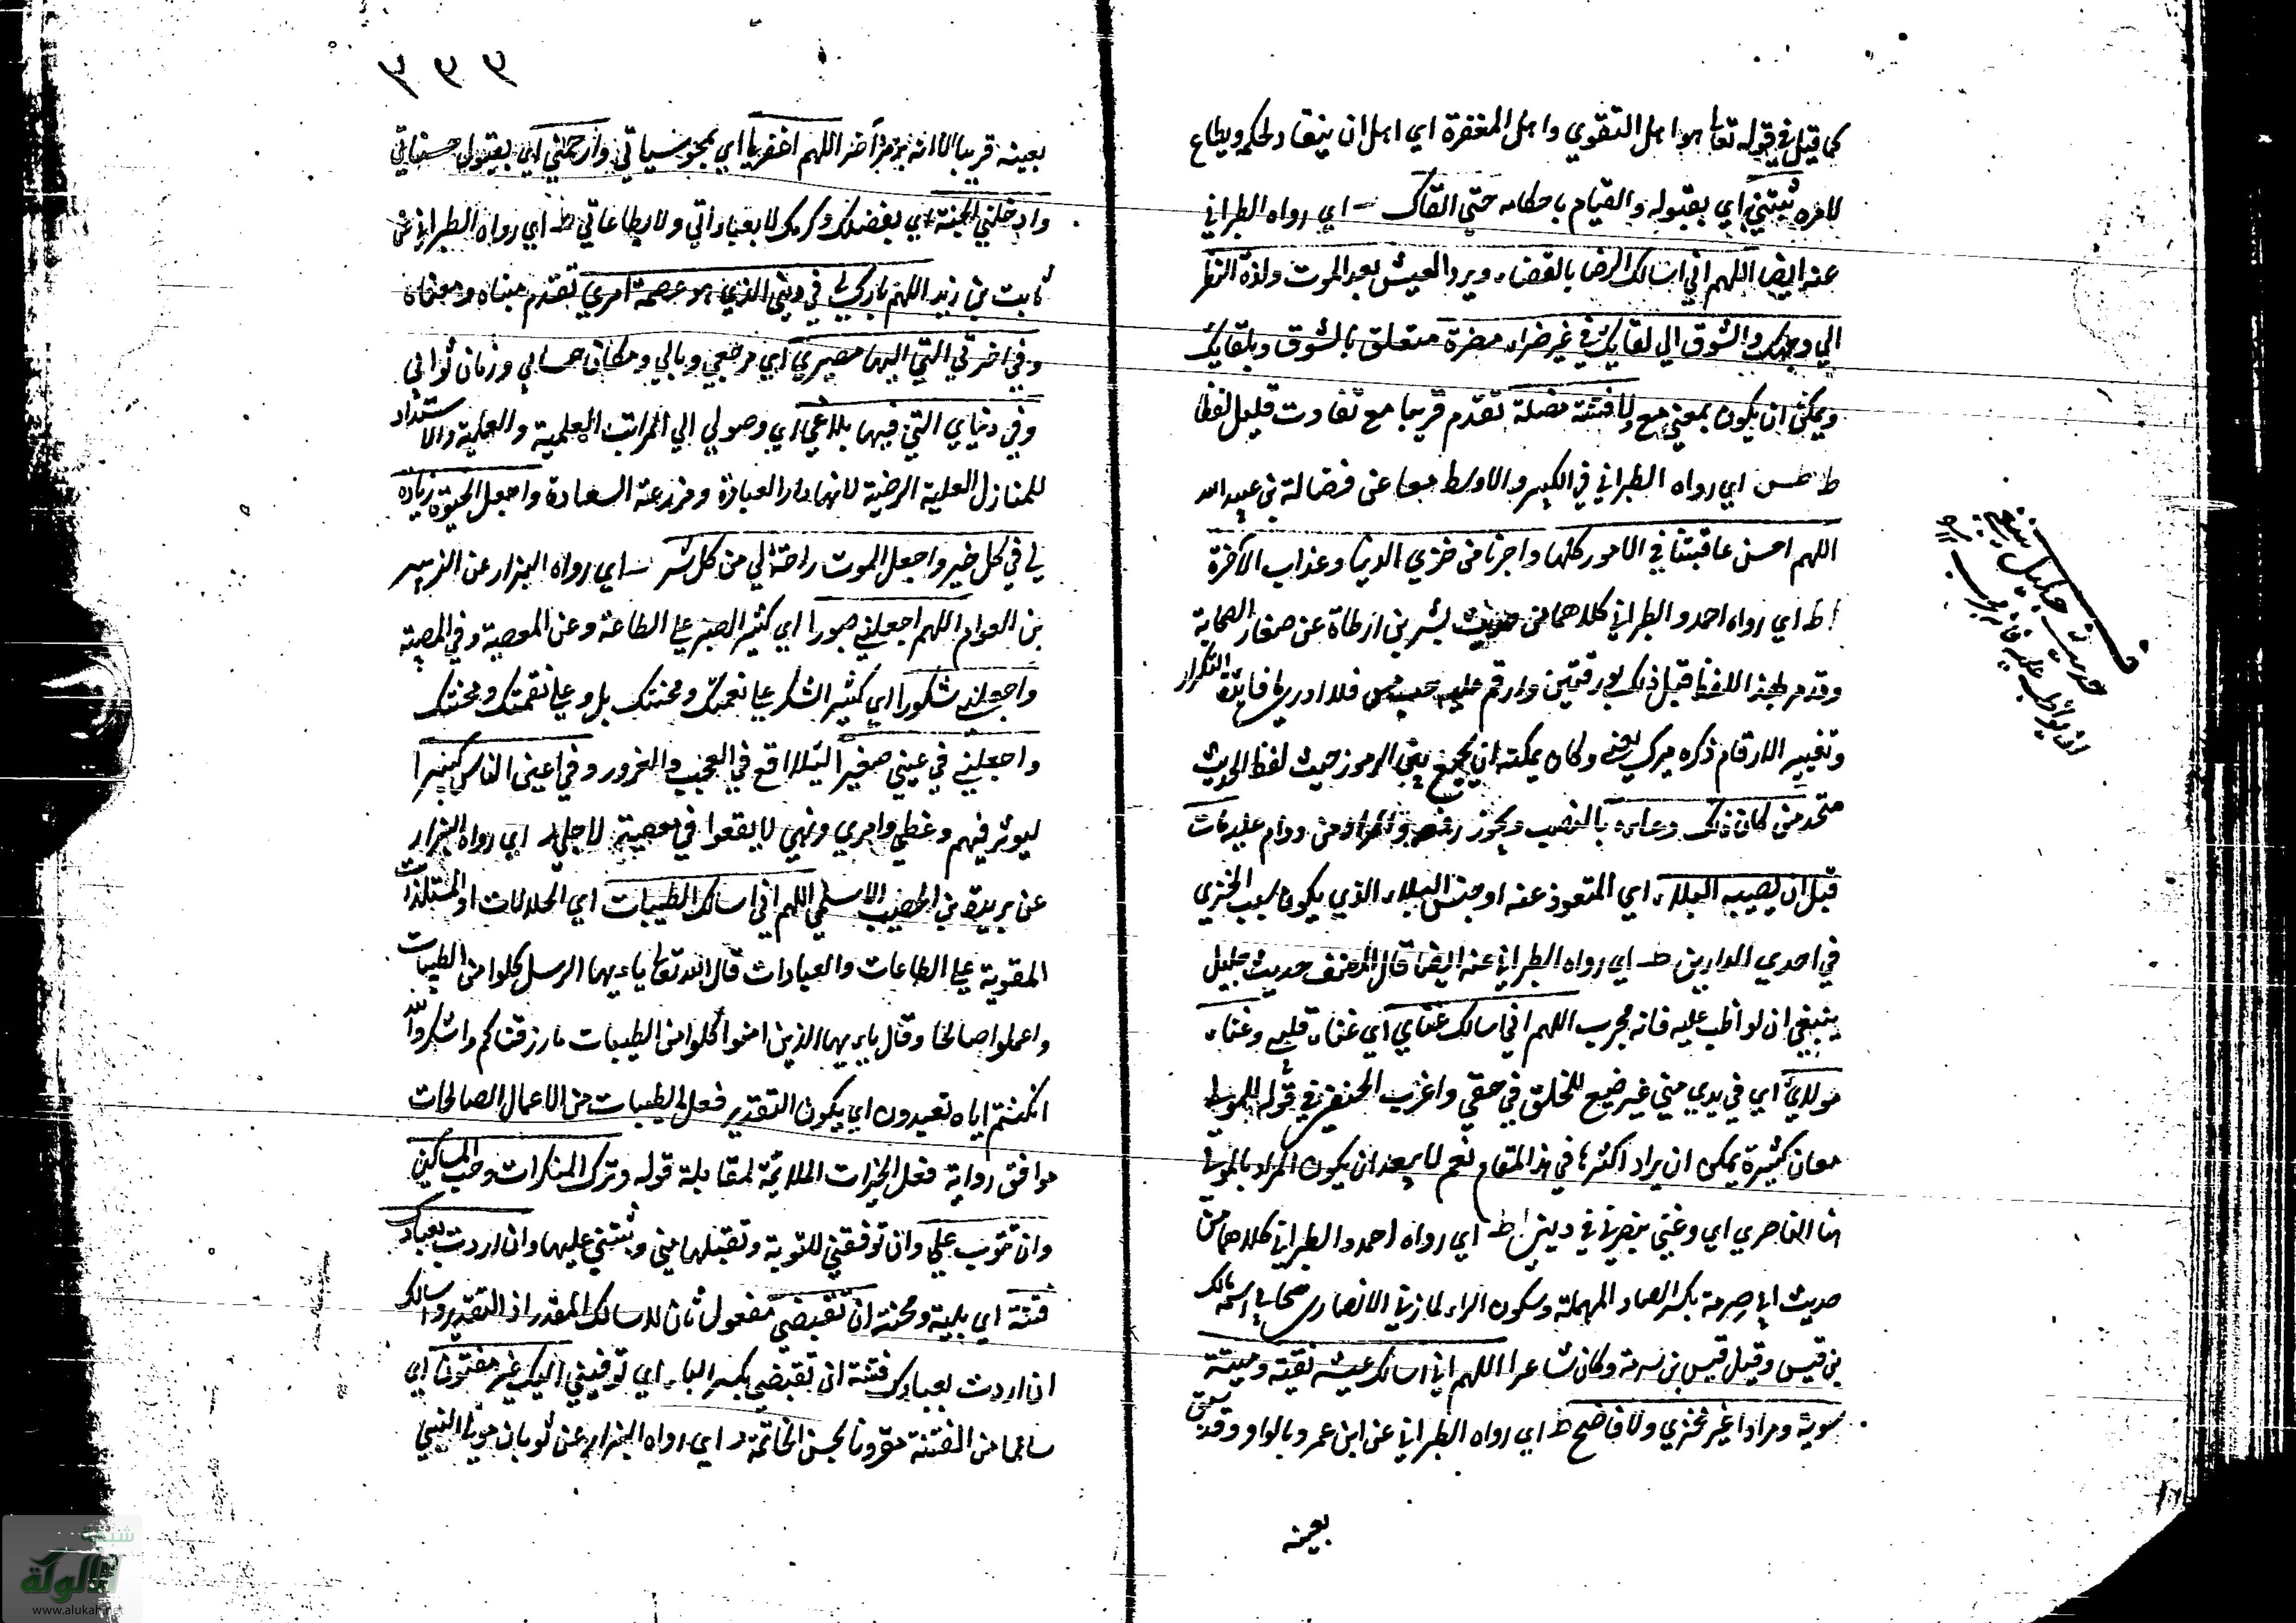 كما قيل في قوله تعالى هو اهل التقوي واهل المغفرة اي اهل ان ينقاد لحكمه ويطاع
لامره ثبتني اي بقبوله والقيام باحكامه حتي القاك اي رواه الطبراني
عنه ايضا اللهم اني اسالك الرضا بالقضاء وبرد العيش بعد الموت ولذة النظر
الي وجهك والشوق الي لقايك في غير ضراء مضرة متعلق بالشوق وبلقايك
ويمكن ان يكون بمعني مع ولا فتنة مضلة تقدم قريبا مع تفاوت قليل لفظا
ط طس اي رواه الطبراني في الكبير والاوسط معا عن فضالة بن عبيد الله
اللهم احسن عاقبتنا في الامور كلها واجرنا من خزي الدنيا وعذاب الآخرة
ا ط اي رواه احمد والطبراني كلاهما من حديث بشر بن ارطاة عن صغار الصحابة
وقد مر لهذا اللفظ قبل ذلك بورقتين وارقم عليه حب مس فلا ادري ما فايدة التكرار
وتغيير الارقام ذكره ميرك يعني وكان يمكنه ان يجمع بين الرموز حيث لفظ الحديث
متحد من كان ذلك دعاءه بالنصب ويجوز رفعه والمراد من دوام عليه مات
قبل ان يصيبه البلاء اي المتعوذ عنه او جنس البلاء الذي يكون سبب الخزي
في احدي الدارين ط اي رواه الطبراني عنه ايضا قال المصنف حديث جليل
ينبغي ان يواظب عليه فانه مجرب اللهم اني اسالك غناي اي غناء قلبي وغناء
مولاي اي في يدي مني غير ضيع للخلق في حقي واغرب الحنفي في قوله للمولى
معان كثيرة يمكن ان يراد اكثرها في هذا المقام نعم لا يبعد ان يكون المراد بالمولى
هنا الناصري اي وغني ينصرني في ديني ا ط اي رواه احمد والطبراني كلاهما من
حديث ابي صرمة بكسر الصاد المهملة وسكون الراء المازني الانصاري صحابي اسمه مالك
بن قيس وقيل قيس بن صرمة وكان شاعرا اللهم اني اسالك عيشة نقية وميتة
سوية ومرادا غير مخزي ولا فاضح ط اي رواه الطبراني عن ابن عمرو بالواو وقد سبق
بعينه
حديث جليل ينبغي
ان يواظب عليه فانه مجرب
٣٩٩
بعينه قريبا الا انه برمز آخر اللهم اغفر لي اي بمحو سياتي وارحمني اي بقبول حسناتي
وادخلني الجنة اي بفضلك وكرمك لا بعباداتي ولا بطاعاتي ط اي رواه الطبراني عن
ثابت بن زيد اللهم بارك لي في ديني الذي هو عصمة امري تقدم مبناه ومعناه
وفي اخرتي التي اليها مصيري اي مرجعي ومالي ومكان حسابي وزمان ثوابي
وفي دنياي التي فيها بلاغي اي وصولي الي المراتب العلمية والعملية والاستعداد
للمنازل العلية الرضية لانها دار العبادة ومزرعة السعادة واجعل الحيوة زيادة
لي في كل خير واجعل الموت راحة لي من كل شر اي رواه البزار عن الزبير
بن العوام اللهم اجعلني صبورا اي كثير الصبر علي الطاعة وعن المعصية وفي المصيبة
واجعلني شكورا اي كثير الشكر علي نعمتك ومحنتك بل وعلي نقمتك ومحنتك
واجعلني في عيني صغيرا لئلا اقع في العجب والغرور وفي اعين الناس كبيرا
ليوثر فيهم وعظي وامري ونهيي لا يقعوا في معصية لاجلي ر اي رواه البزار
عن بريدة بن الحصيب الاسلمي اللهم اني اسالك الطيبات اي الحلالات او المستلذات
المقوية علي الطاعات والعبادات قال الله تعالى ياءيها الرسل كلوا من الطيبات
واعملوا صالحا وقال ياءيها الذين امنوا كلوا من الطيبات ما رزقناكم واشكروا لله
ان كنتم اياه تعبدون اي يكون التقدير فعل الطيبات من الاعمال الصالحات
موافق رواية فعل الخيرات الملائمة لمقابلة قوله وترك المنكرات وحب المساكين
وان تتوب علي وان توفقني للتوبة وتقبلها مني وتثبتني عليها وان اردت بعبادك
فتنة اي بلية ومحنة ان تقبضني مفعول ثان لاسالك المقدر اذ التقدير واسالك
ان اردت بعبادك فتنة ان تقبضني بكسر الباء اي توفيني اليك غير مفتون اي
سالما من الفتنة مقرونا بحسن الخاتمة ر اي رواه البزار عن ثوبان مولى النبي
شبكة
الألوكة
www.alukah.net